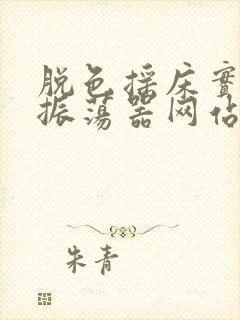 脱色摇床实
振荡器网站
朱青